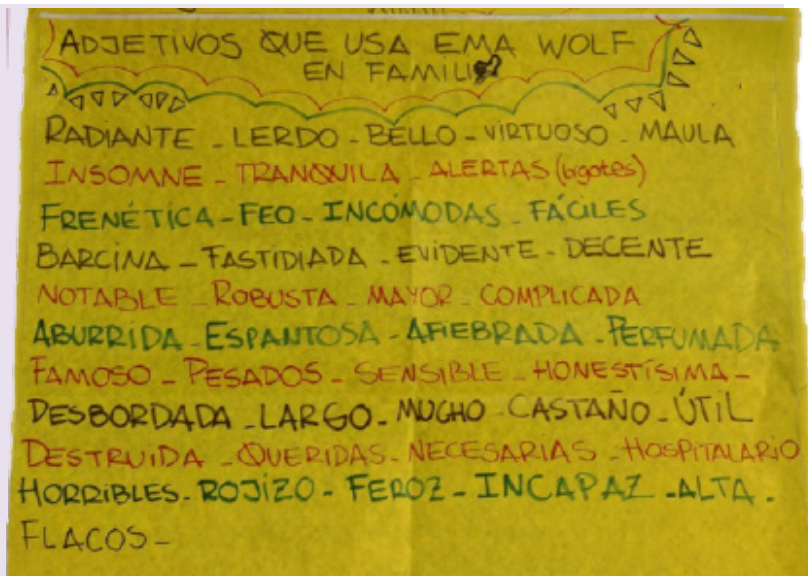 ADJETIVOS QUE USA EMA WOLF
EN FAMILIA?
RADIANTE - LERDO - BELLO - VIRTUOSO - MAULA
INSOMNE - TRANQUILA - ALERTAS (bigotes)
FRENÉTICA - FEO - INCÓMODAS - FÁCILES
BARCINA - FASTIDIADA - EVIDENTE - DECENTE
NOTABLE - ROBUSTA - MAYOR - COMPLICADA
ABURRIDA - ESPANTOSA - AFIEBRADA - PERFUMADA
FAMOSO - PESADOS - SENSIBLE - HONESTÍSIMA -
DESBORDADA - LARGO - MUCHO - CASTAÑO - ÚTIL
DESTRUIDA - QUERIDAS - NECESARIAS - HOSPITALARIO
HORRIBLES - ROJIZO - FEROZ - INCAPAZ - ALTA -
FLACOS -